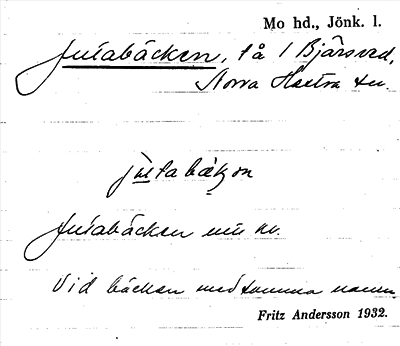 Mo hd., Jönk. l.
Jutabäcken, tå i Bjärsved,
Norra Hestra sn.
jutabäkən
Jutabäcken
Vid bäcken med samma namn.
Fritz Andersson 1932.